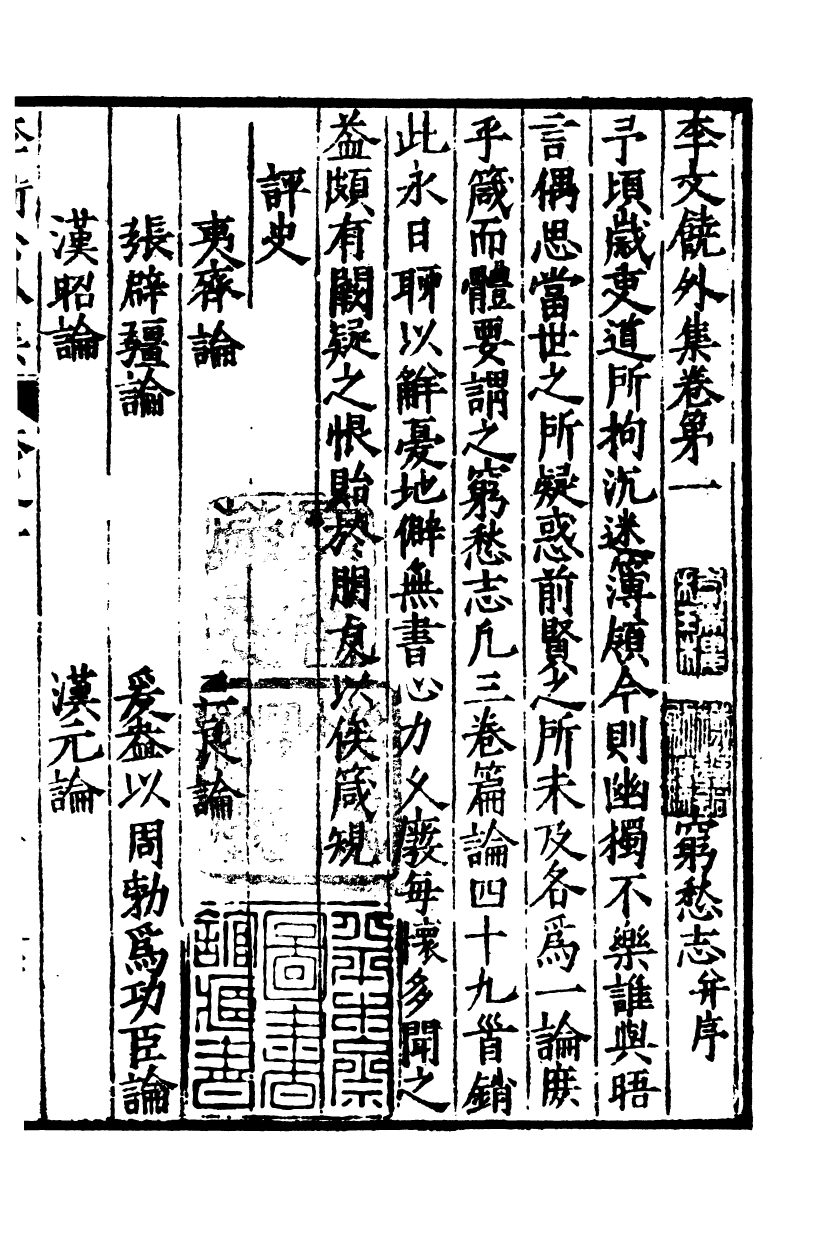 李文饒外集卷第一 窮愁志并序
予頃歲吏道所拘沉迷簿領今則幽獨不樂誰與晤
言偶思當世之所疑惑前賢之所未及各爲一論庶
乎箴而體要謂之窮愁志凡三卷篇論四十九首銷
此永日聊以觧憂地僻無書心力久廢每懷多聞之
益頗有闕疑之恨貽於朋友以俟箴規
評史
夷齊論 三良論
張辟疆論 爰盎以周勃爲功臣論
漢昭論 漢元論